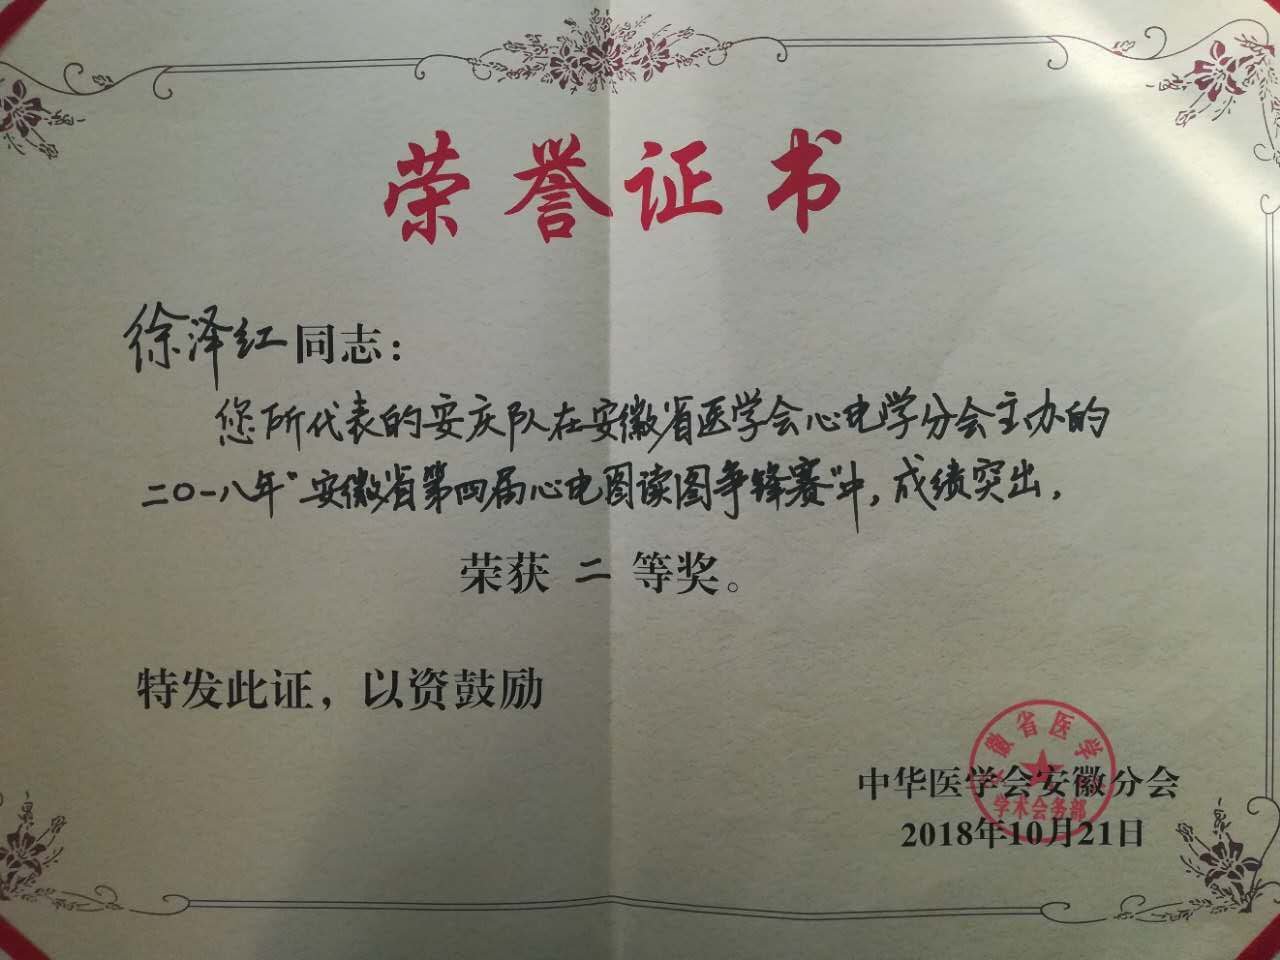 荣誉证书
徐泽红同志：
您所代表的安庆队在安徽省医学会心电学分会主办的
二〇一八年“安徽省第四届心电图读图争锋赛”中，成绩突出，
荣获 二 等奖。
特发此证，以资鼓励
徽省医学
学术会务部
中华医学会安徽分会
2018年10月21日